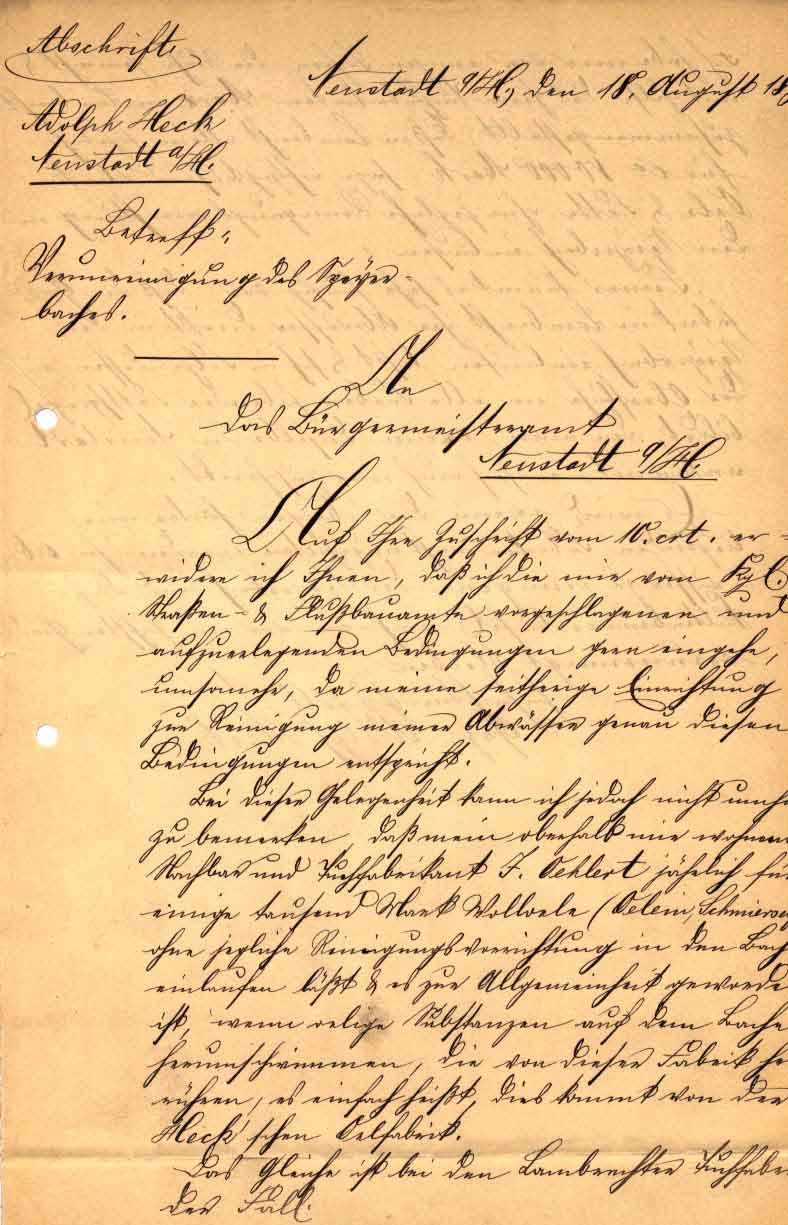 Abschrift.
Neustadt a/H., den 18. August 18
Adolph Heck
Neustadt a/H.
Betreff:
Verunreinigung des Speyer-
baches.
An
das Bürgermeisteramt
Neustadt a/H.
Auf Ihre Zuschrift vom 10. crt. er-
widere ich Ihnen, daß ich die mir vom Kgl.
Straßen- & Flußbauamte vorgeschlagenen und
aufzuerlegenden Bedingungen gern eingehe,
umsomehr, da meine seitherige Einrichtung
zur Reinigung meiner Abwässer genau diesen
Bedingungen entspricht.
Bei dieser Gelegenheit kann ich jedoch nicht umh
zu bemerken, daß mein oberhalb mir wohnen
Nachbar und Tuchfabrikant F. Oehlert jährlich fü
einige tausend Mark Wolloele (Oelein, Schmierse
ohne jegliche Reinigungsvorrichtung in den Bach
einlaufen läßt & es zur Allgemeinheit geworde
ist, wenn oelige Substanzen auf dem Bache
herumschwimmen, die von dieser Fabrik he
rühren, es einfach heißt, dies kommt von der
Heck'schen Oelfabrik.
Das Gleiche ist bei den Lambrechter Tuchfabr
der Fall.